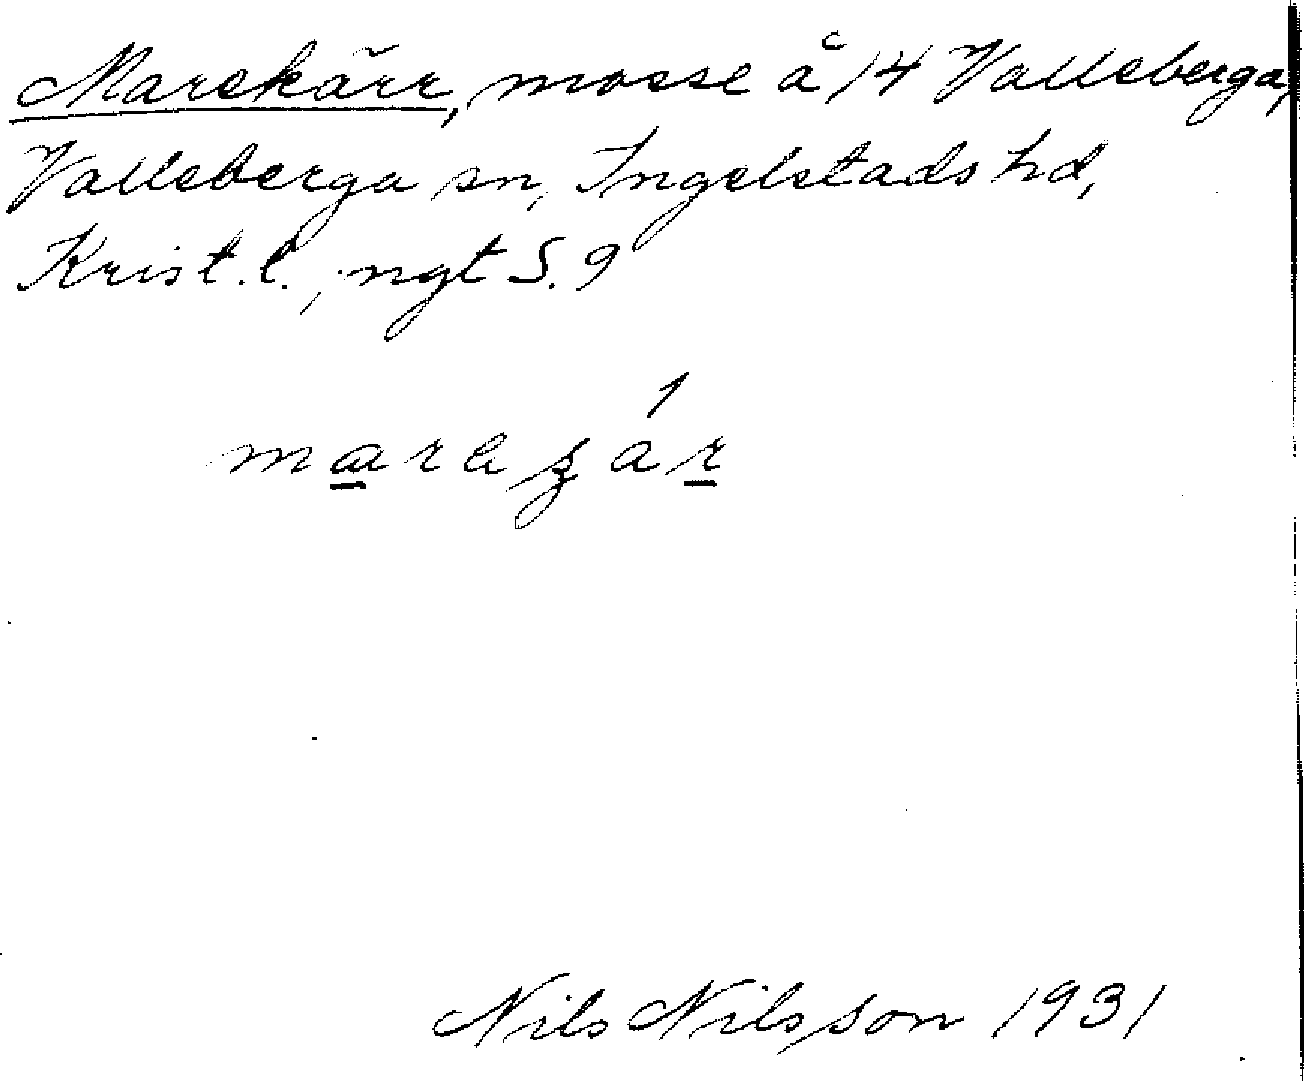 Marekärr, mosse å 14 Valleberga,
Valleberga sn, Ingelstads hd,
Krist. l., ngt S. 9
Nils Nilsson 1931